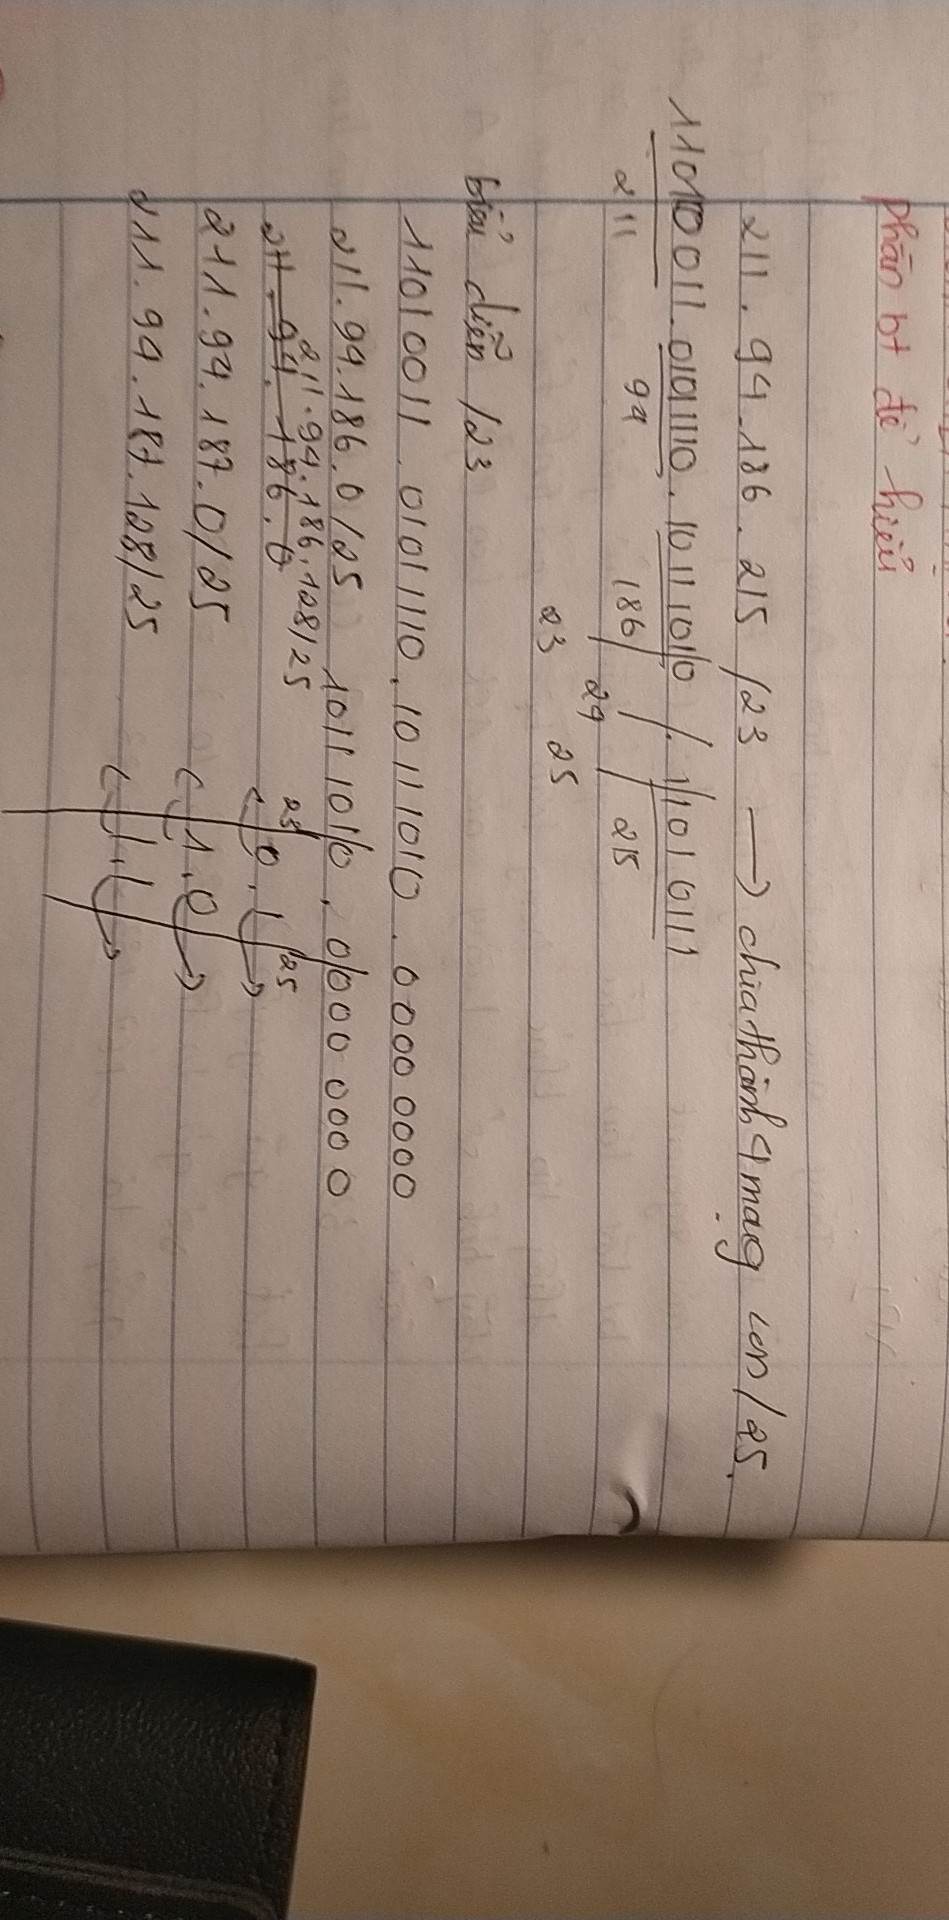 phần bt dễ hiểu
211.94.186.215 /23 → chia thành 4 mạng con /25.
11010011.01011110.1011101|0 /. 1|1010111
211 94 186 215
24
23 25
biểu diễn /23
11010011.01011110.10111010.00000000
211.94.186.0/25 1011101|0.0|000 0000
211.94.186.128/25
211.94.186.0 23 0.1 25
211.94.187.0/25 1.0
211.94.187.128/25 1.1